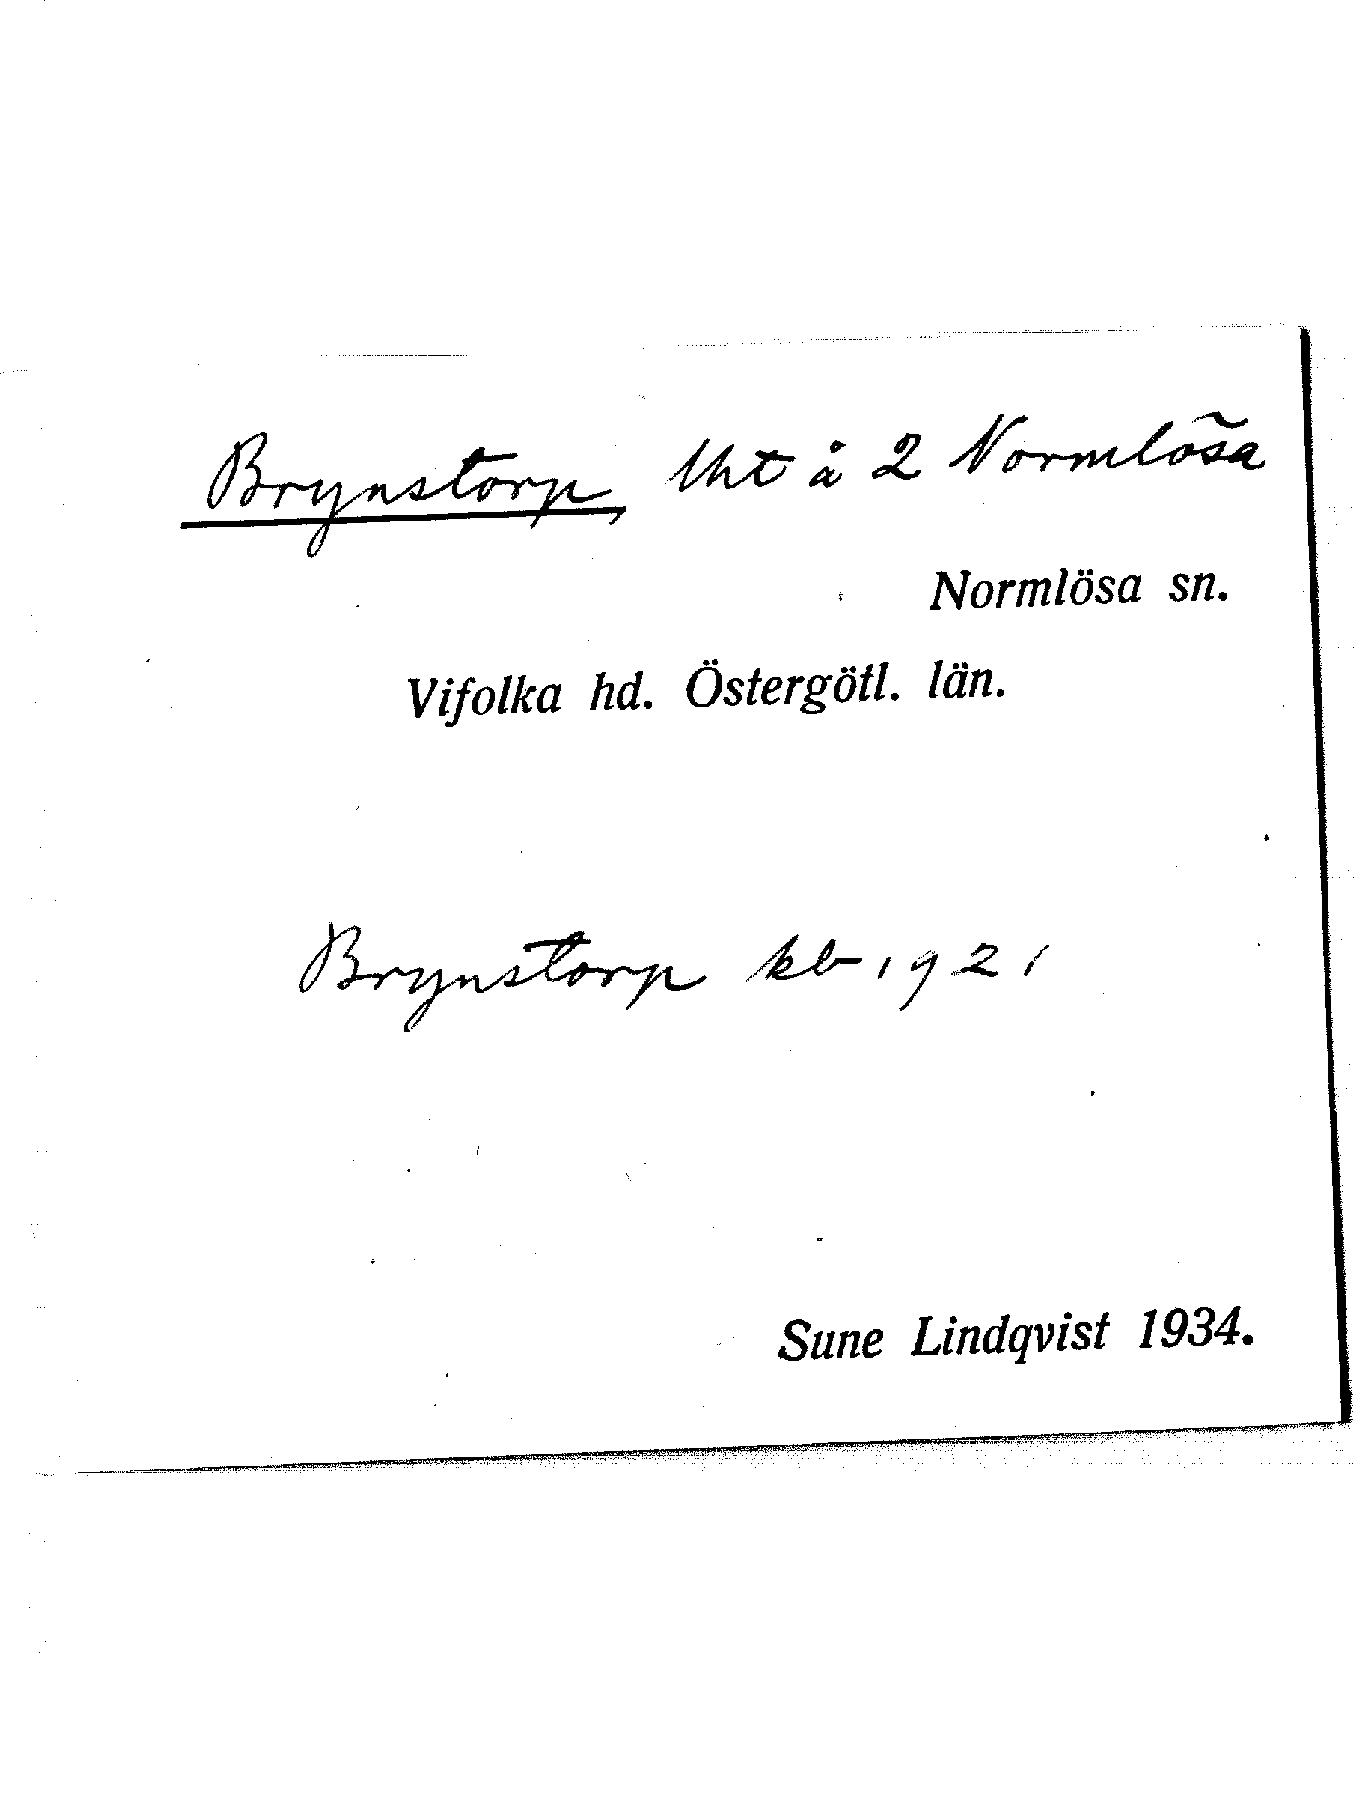 Brynstorp, lht å 2 Normlösa
Normlösa sn.
Vifolka hd. Östergötl. län.
Brynstorp kb 1921
Sune Lindqvist 1934.